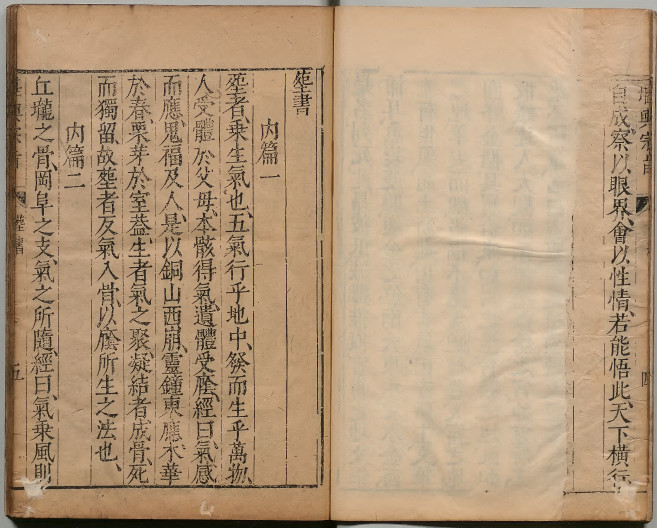 自成察以眼界會以性情若能悟此天下橫行
塟書
內篇一
塟者乘生氣也五氣行乎地中發而生乎萬物
人受體於父母本骸得氣遺體受廕經曰氣感
而應鬼福及人是以銅山西崩靈鐘東應木華
於春栗芽於室葢生者氣之聚凝結者成骨死
而獨留故塟者反氣入骨以廕所生之法也
內篇二
丘壠之骨岡阜之支氣之所隨經曰氣乘風則
塟書
五